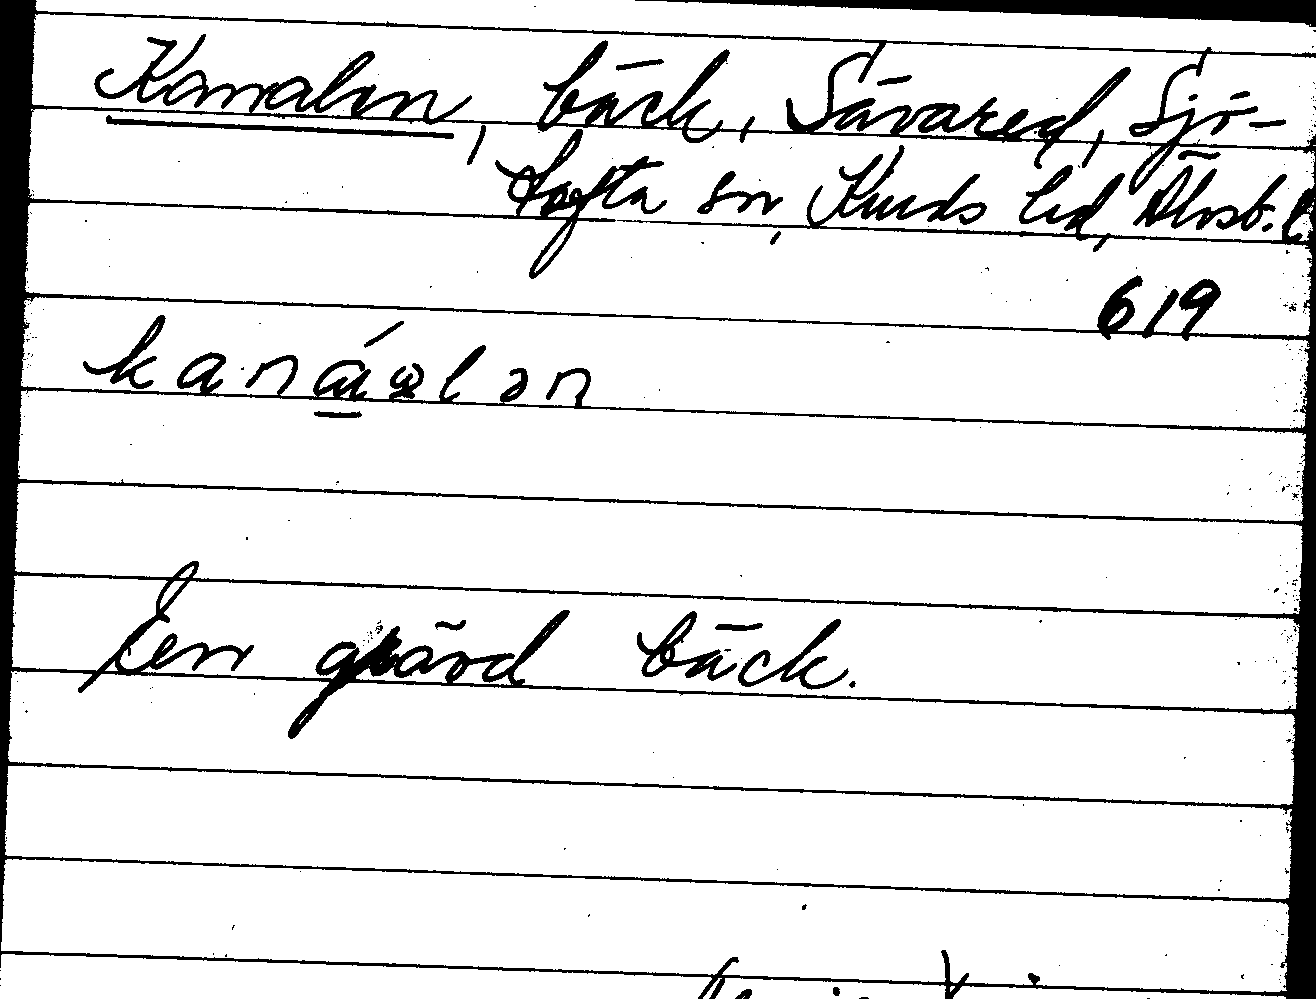 Kanalen, bäck, Sävared, Sjö-
tofta sn, Kinds hd, Älvsb. l.
619
kanáɷlən
En grävd bäck.